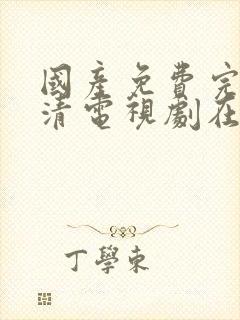 國產免費完
清電視劇在
丁學東